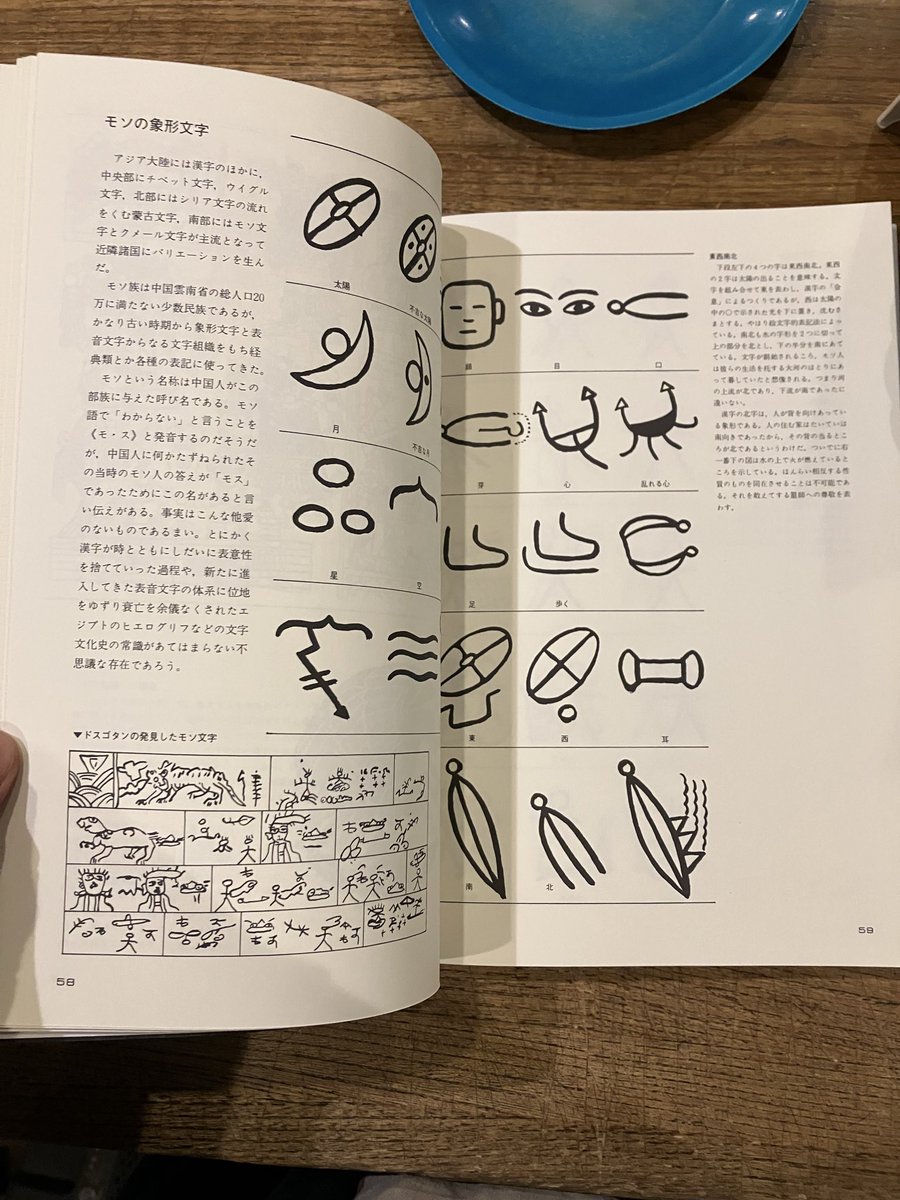 モソの象形文字
アジア大陸には漢字のほかに，
中央部にチベット文字，ウイグル
文字，北部にはシリア文字の流れ
をくむ蒙古文字，南部にはモソ文
字とクメール文字が主流となって
近隣諸国にバリエーションを生ん
だ。
モソ族は中国雲南省の総人口20
万に満たない少数民族であるが，
かなり古い時期から象形文字と表
音文字からなる文字組織をもち経
典類とか各種の表記に使ってきた。
モソという名称は中国人がこの
部族に与えた呼び名である。モソ
語で「わからない」と言うことを
《モ・ス》と発音するのだそうだ
が，中国人に何かたずねられたそ
の当時のモソ人の答えが「モス」
であったためにこの名があると言
い伝えがある。事実はこんな他愛
のないものであるまい。とにかく
漢字が時とともにしだいに表意性
を捨てていった過程や，新たに進
入してきた表音文字の体系に位地
をゆずり衰亡を余儀なくされたエ
ジプトのヒエログリフなどの文字
文化史の常識があてはまらない不
思議な存在であろう。
太陽
不吉な太陽
月
不吉な月
星
空
▼ドスゴタンの発見したモソ文字
58
顔
目
口
芽
心
乱れる心
足
歩く
東
西
耳
南
北
東西南北
下段左下の4つの字は東西南北。東西
の2字は太陽の出ることを意味する。文
字を組み合せて東を表わし，漢字の「会
意」によるつくりであるが，西は太陽の
中の〇で示された光を下に置き，沈むさ
まとする。やはり絵文字的表記法によっ
ている。南北も水の字形を2つに切って
上の部分を北とし，下の半分を南にあて
ている。文字が創始されるころ，モソ人
は彼らの生活を托する大河のほとりにあ
って暮していたと想像される。つまり河
の上流が北であり，下流が南であったに
違いない。
漢字の北字は，人が背を向けあってい
る象形である。人の住む家はたいていは
南向きであったから，その背の当るとこ
ろが北であるというわけだ。ついでに右
一番下の図は水の上で火が燃えていると
ころを示している。ほんらい相反する性
質のものを同在させることは不可能であ
る。それを敢えてする
への尊敬を表
わす。
59